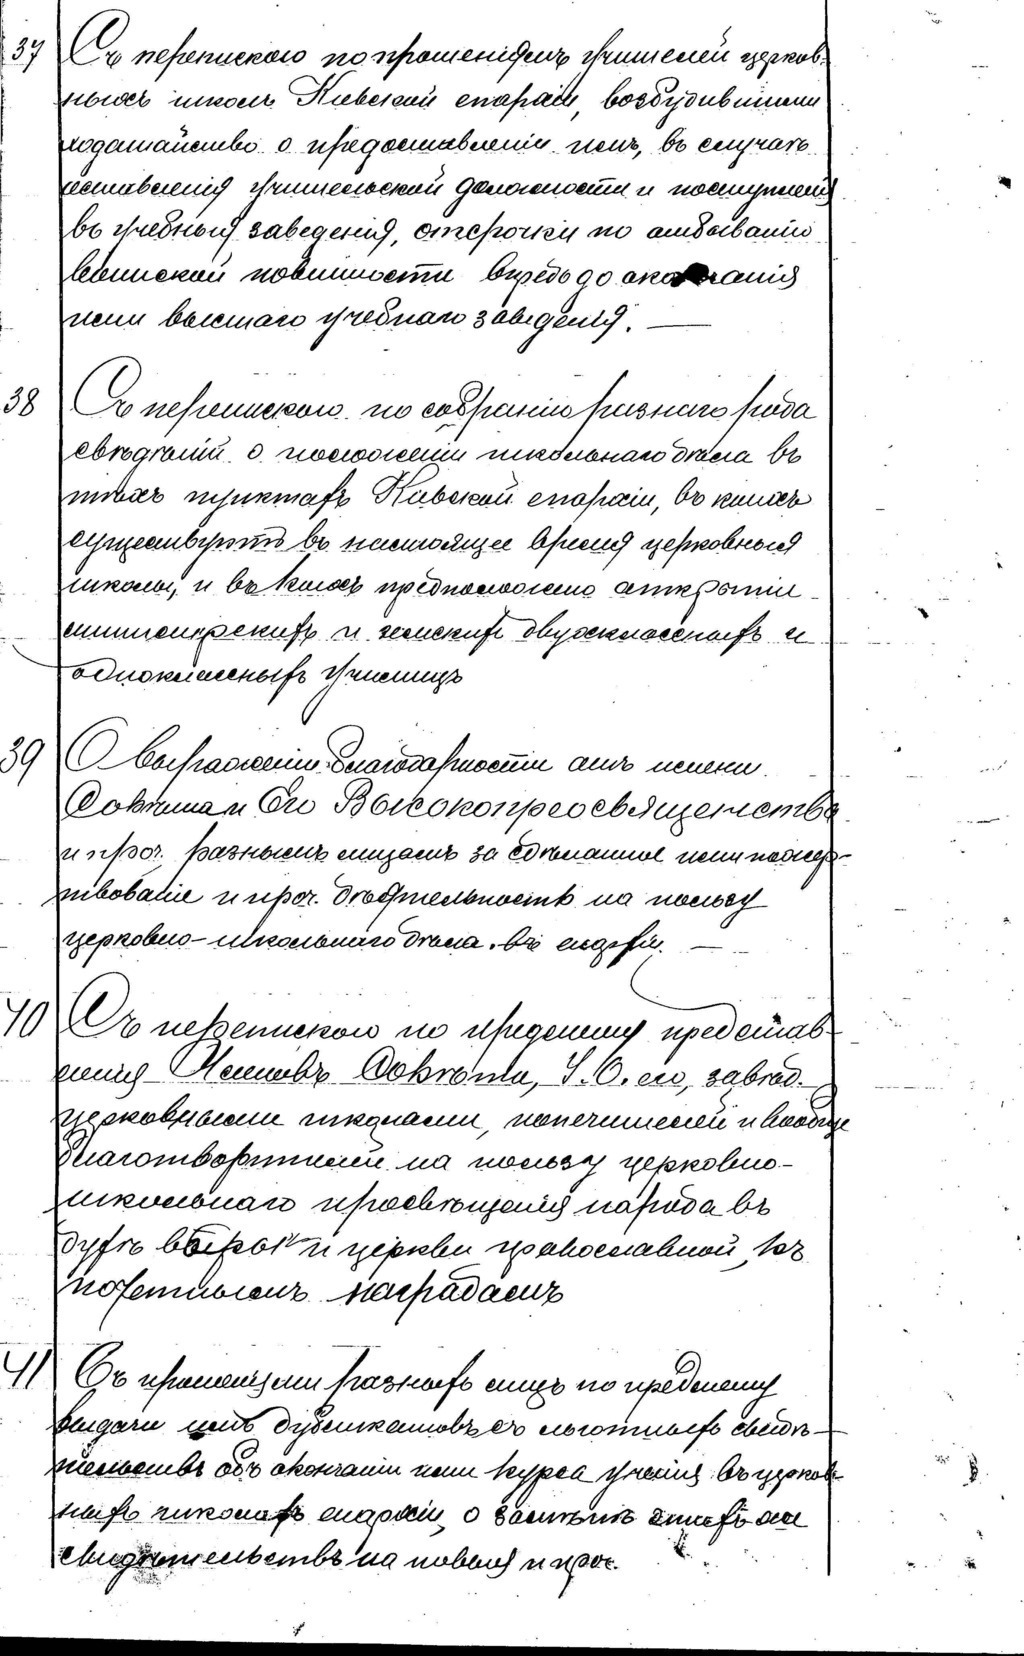 37 Съ перепискою по прошеніямъ учителей церков-
ныхъ школъ Кіевской епархіи, возбудившими
ходатайство о предоставленіи имъ, въ случаѣ
оставленія учительской должности и поступленія
въ учебныя заведенія, отсрочки по отбыванію
воинской повинности впредь до окончанія
ими высшаго учебнаго заведенія. —
38 Съ перепискою по собранію разнаго рода
свѣдѣній о положеніи школьнаго дѣла въ
тѣхъ пунктахъ Кіевской епархіи, въ коихъ
существуютъ въ настоящее время церковныя
школы, и въ коихъ предположено открытіе
министерскихъ и земскихъ двухклассныхъ и
одноклассныхъ училищъ
39 О выраженіи благодарности отъ имени
Совѣта и Его Высокопреосвященства
и проч. разнымъ лицамъ за сдѣланное ими пожер-
твованіе и проч. дѣятельность на пользу
церковно-школьнаго дѣла въ епархіи. —
40 Съ перепискою по предмету представ-
ленія Членовъ Совѣта, У. О. его, завѣд.
церковными школами, попечителей и вообще
благотворителей на пользу церковно-
школьнаго просвѣщенія народа въ
духѣ вѣры и церкви православной, къ
почетнымъ наградамъ
41 Съ прошеніями разныхъ лицъ по предмету
выдачи имъ дубликатовъ со льготныхъ свидѣ-
тельствъ объ окончаніи ими курса ученія въ церков-
ныхъ школахъ епархіи, о замѣнѣ
свидѣтельствъ на новыя и проч.